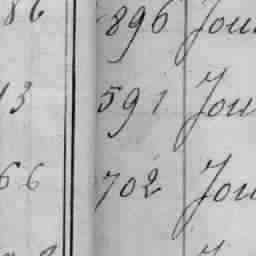 86 896 Jou
13 591 Jou
66 702 Jou